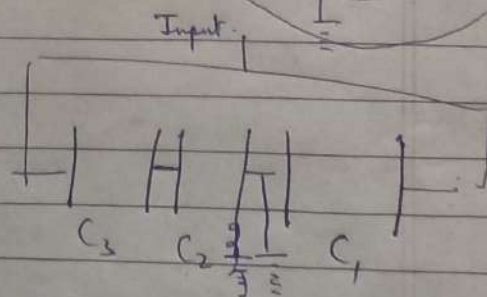 Input.
C3 C2 C1